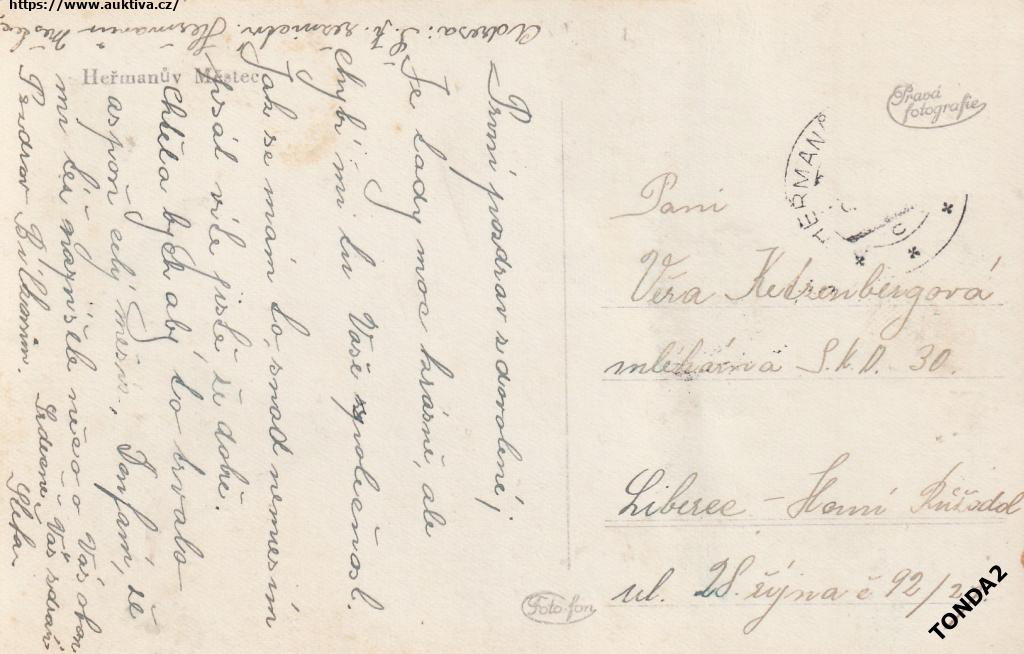 https://www.auktiva.cz/
Adresa: Š. K. Heřmanův Městec
Heřmanův Městec
První pozdrav z dovolené,
Je tady moc krásně, ale
chybí mi tu Vaše společnost.
Jak se mám to, snad nemusím
psát víte jistě že dobře.
Chtěla bych aby to trvalo
aspoň celý měsíc. Doufám, že
mi též napíšete něco o Vás
Pozdrav
Srdečně Vás zdraví
Pravá
fotografie
HEŘMAN
C
Paní
Věra Ketzenbergová
mlékárna S.K.D. 30.
Liberec - Horní Růžodol
ul. 28. října č 92/2
Foto-fon
TONDA2